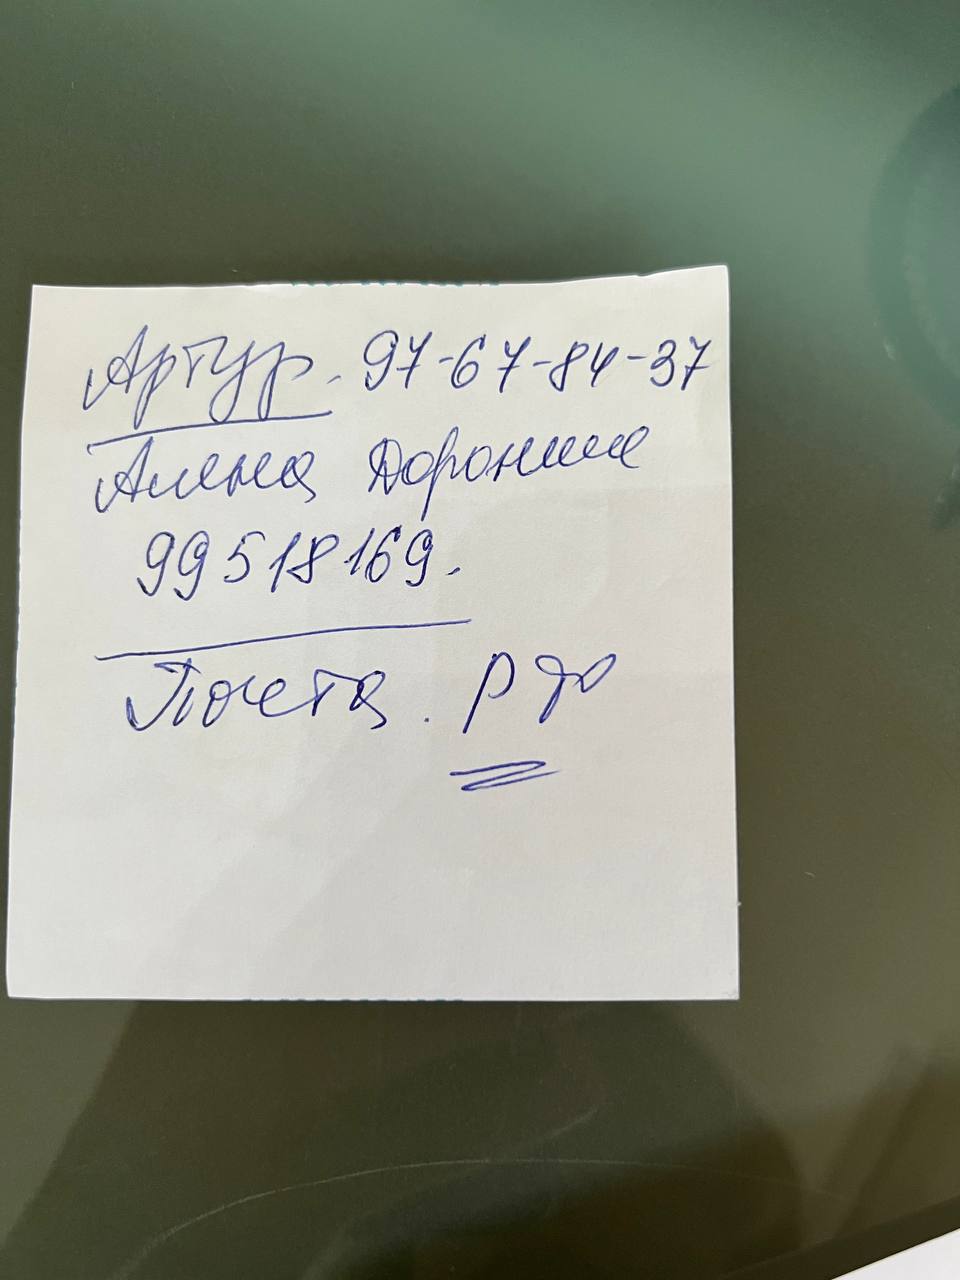 Артур. 97-67-84-37
Алена Доронина
99518169.
Почта. РФ